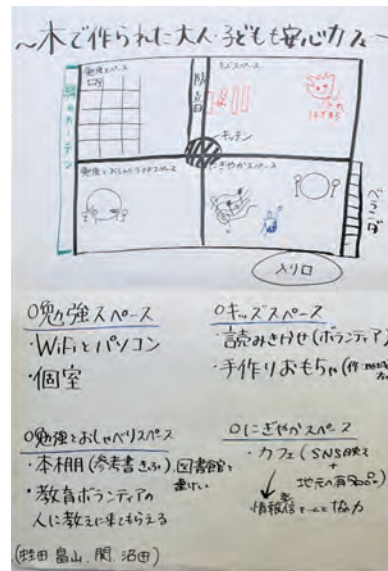 ～木で作られた大人・子どもも安心カフェ～
勉強スペース
キッズスペース
キッチン
勉強とおしゃべりOKスペース
にぎやかスペース
入り口
○勉強スペース
・WiFiとパソコン
・個室
○キッズスペース
・読みきかせ(ボランティア)
・手作りおもちゃ(作:地域
○勉強とおしゃべりスペース
・本棚(参考書きふ)、図書館と
・教育ボランティアの
人に教えに来てもらえる
○にぎやかスペース
・カフェ(SNS映え
+
地元の有名
情報発信チームと協力
畠山、関、沼田)